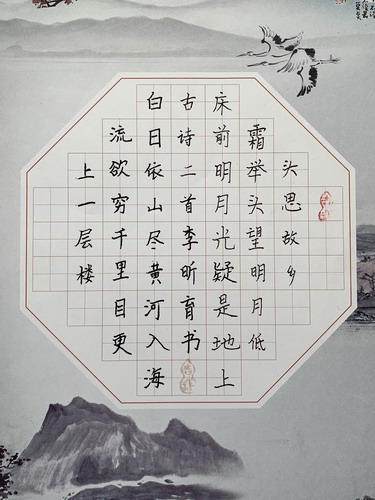 古诗二首李昕育书
床前明月光疑是地上
霜举头望明月低
头思故乡
白日依山尽黄河入海
流欲穷千里目更
上一层楼